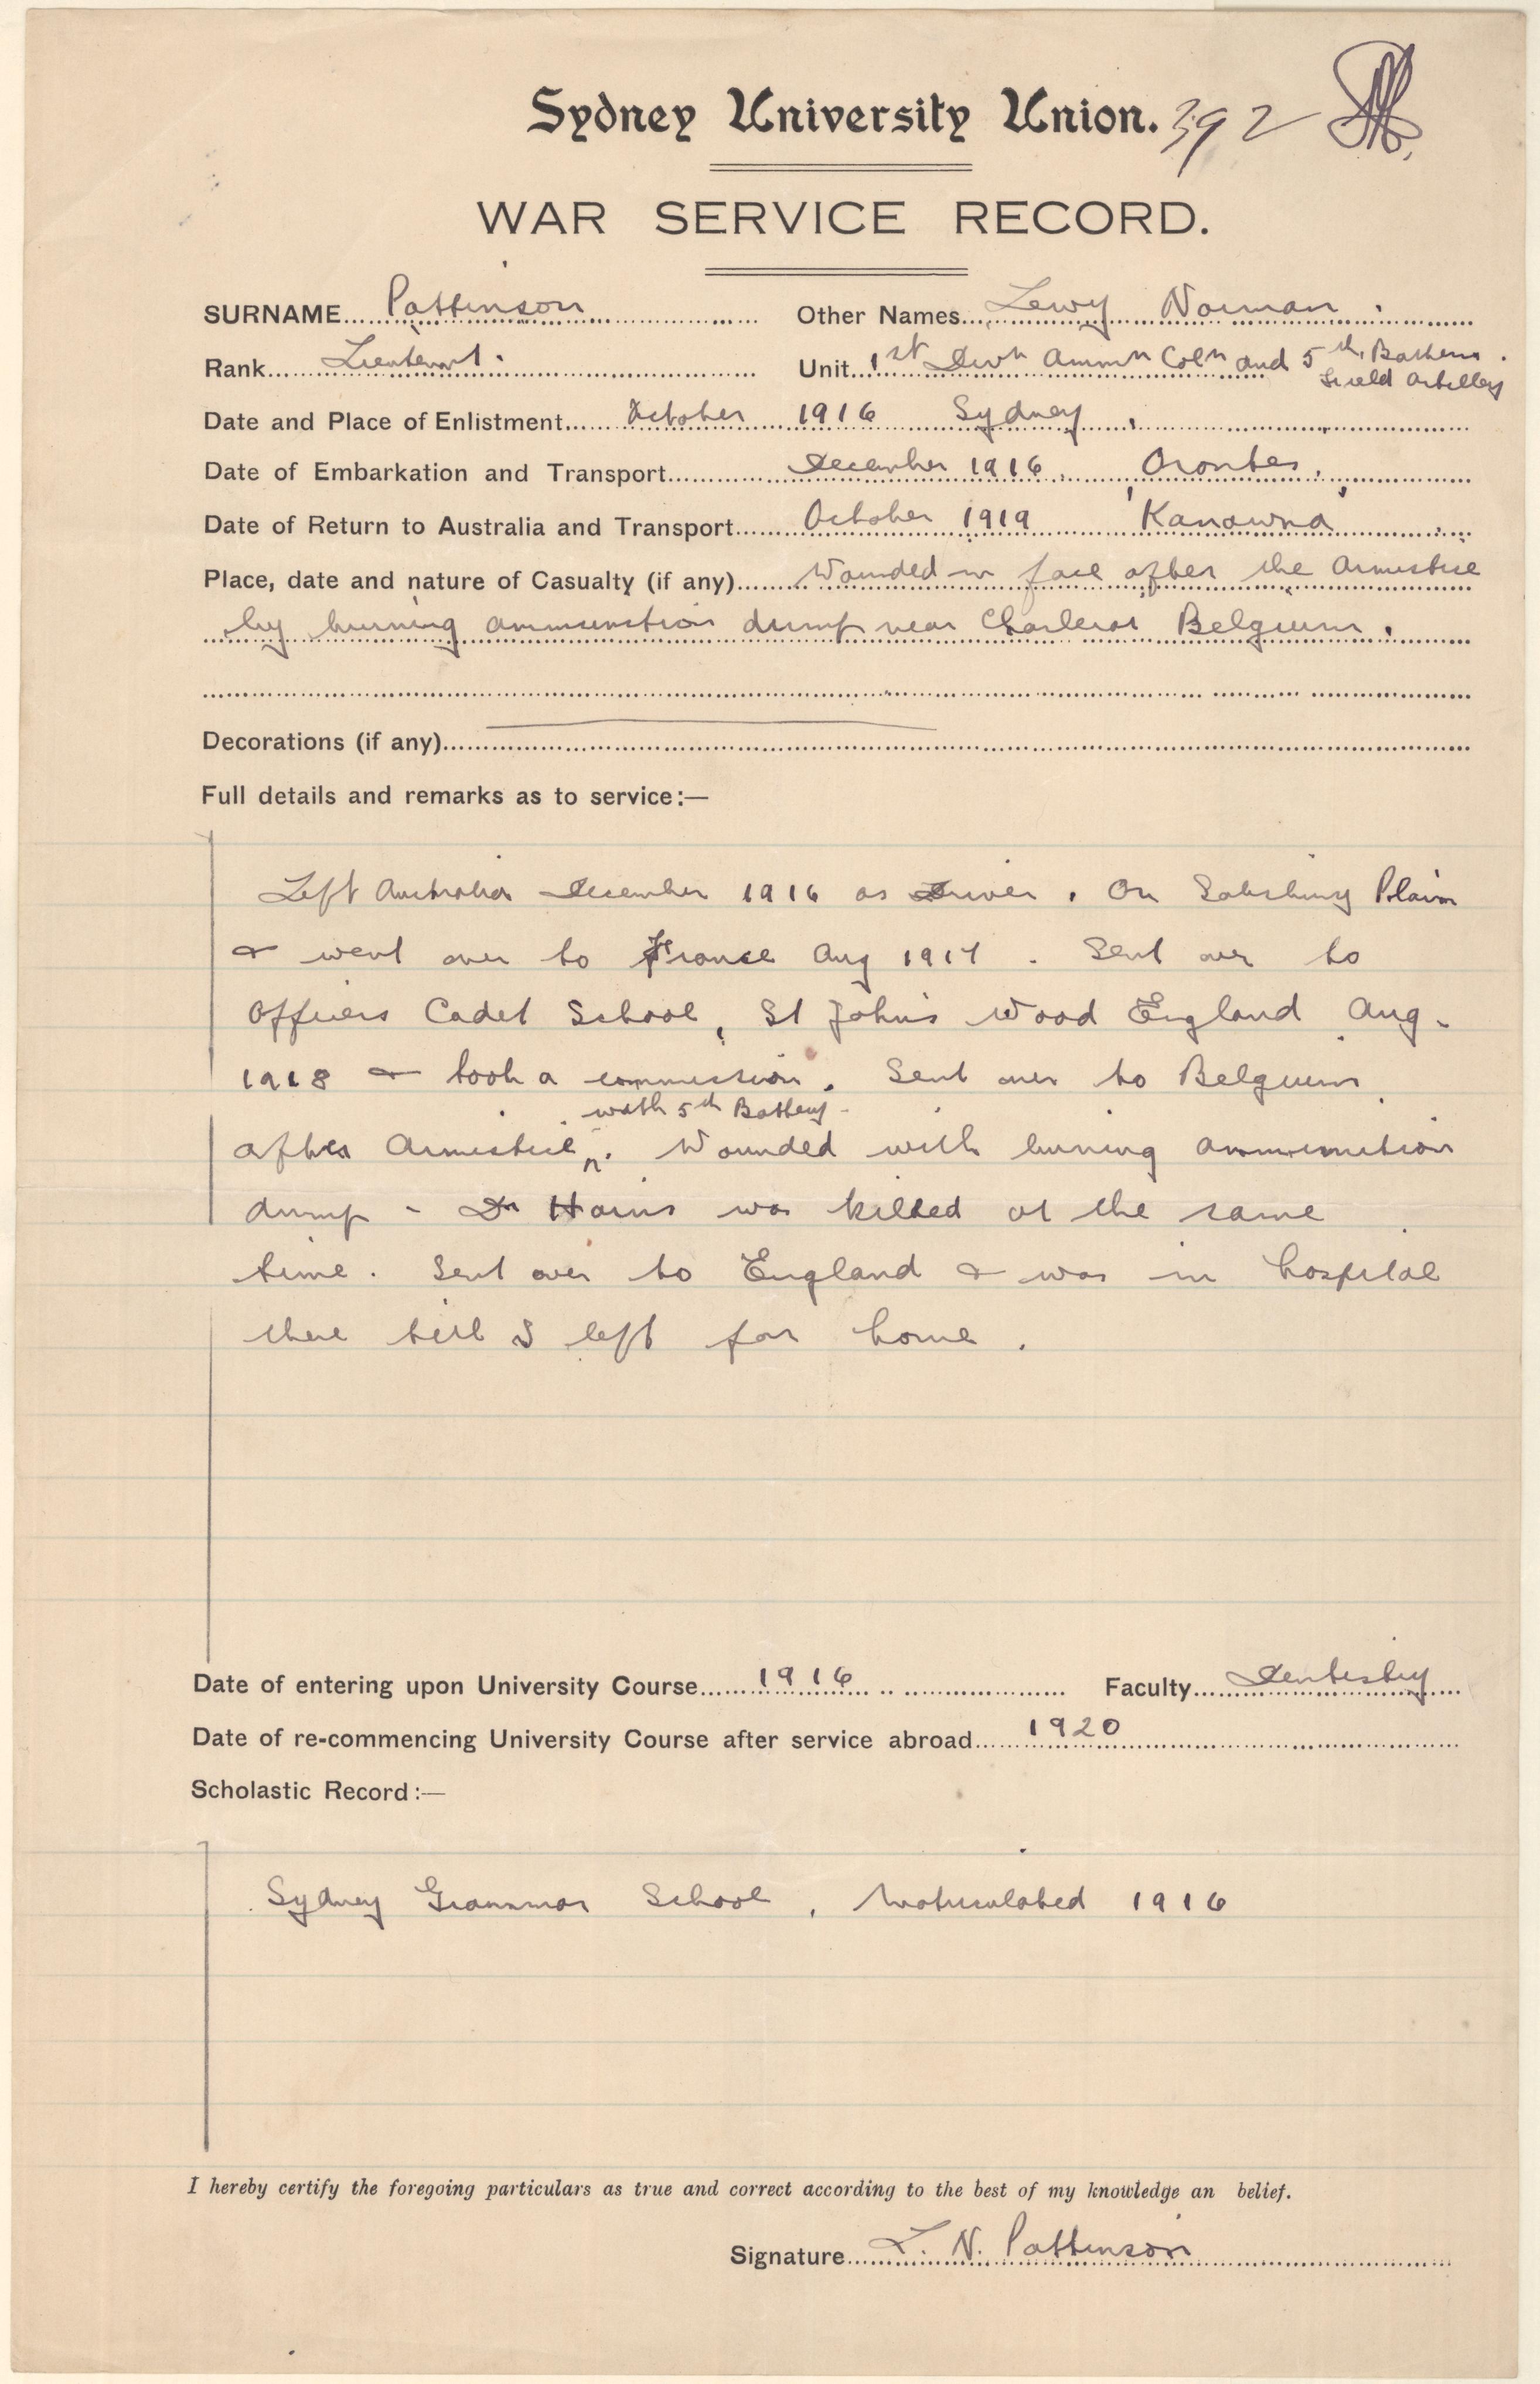 Sydney University Union. 392
WAR SERVICE RECORD.
SURNAME Pattinson Other Names Lewy Norman.
Rank Lieutenant. Unit 1st Divn Ammn Coln and 5th Battery.
Field Artillery
Date and Place of Enlistment October 1916 Sydney.
Date of Embarkation and Transport December 1916. Orontes.
Date of Return to Australia and Transport October 1919 'Kanowna'
Place, date and nature of Casualty (if any) Wounded in face after the Armistice
by burning ammunition dump near Charleroi Belgium.
Decorations (if any)
Full details and remarks as to service:—
Left Australia December 1916 as Driver. On Salisbury Plain
& went over to France Aug 1917. Sent over to
Officers Cadet School, St John's Wood England Aug.
1918 & took a commission. Sent over to Belgium
with 5th Battery
after Armistice. Wounded with burning ammunition
dump - Dr Harris was killed at the same
time. Sent over to England & was in hospital
there till I left for home.
Date of entering upon University Course 1916 Faculty Dentistry
Date of re-commencing University Course after service abroad 1920
Scholastic Record:—
Sydney Grammar School, Matriculated 1916
I hereby certify the foregoing particulars as true and correct according to the best of my knowledge an belief.
Signature L. N. Pattinson